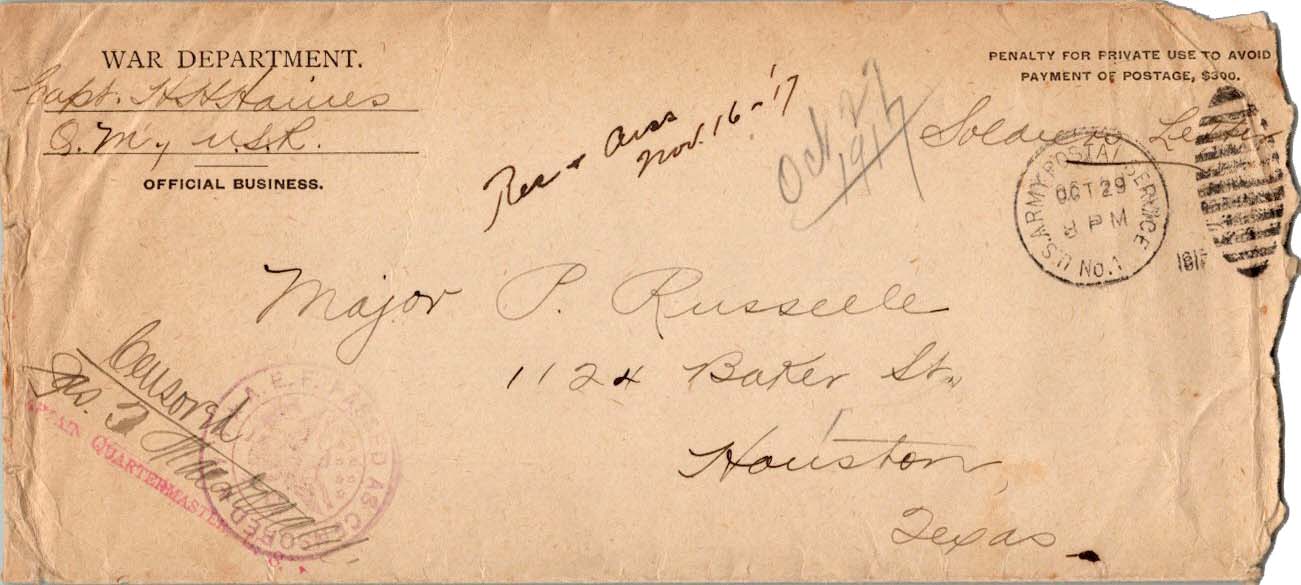 WAR DEPARTMENT.
Capt. H. H. Haines
Q. M., U.S.R.
OFFICIAL BUSINESS.
PENALTY FOR PRIVATE USE TO AVOID
PAYMENT OF POSTAGE, $300.
Soldiers Letter
Rec + Ans
Nov. 16-'17
Oct. 27
1917
U.S. ARMY POSTAL SERVICE
OCT 29
8 PM
No. 1
Major P. Russelle
1124 Baker St.
Houston
Texas
Censored
Jas. F.
CAPTAIN QUARTERMASTER
A.E.F. PASSED AS CENSORED